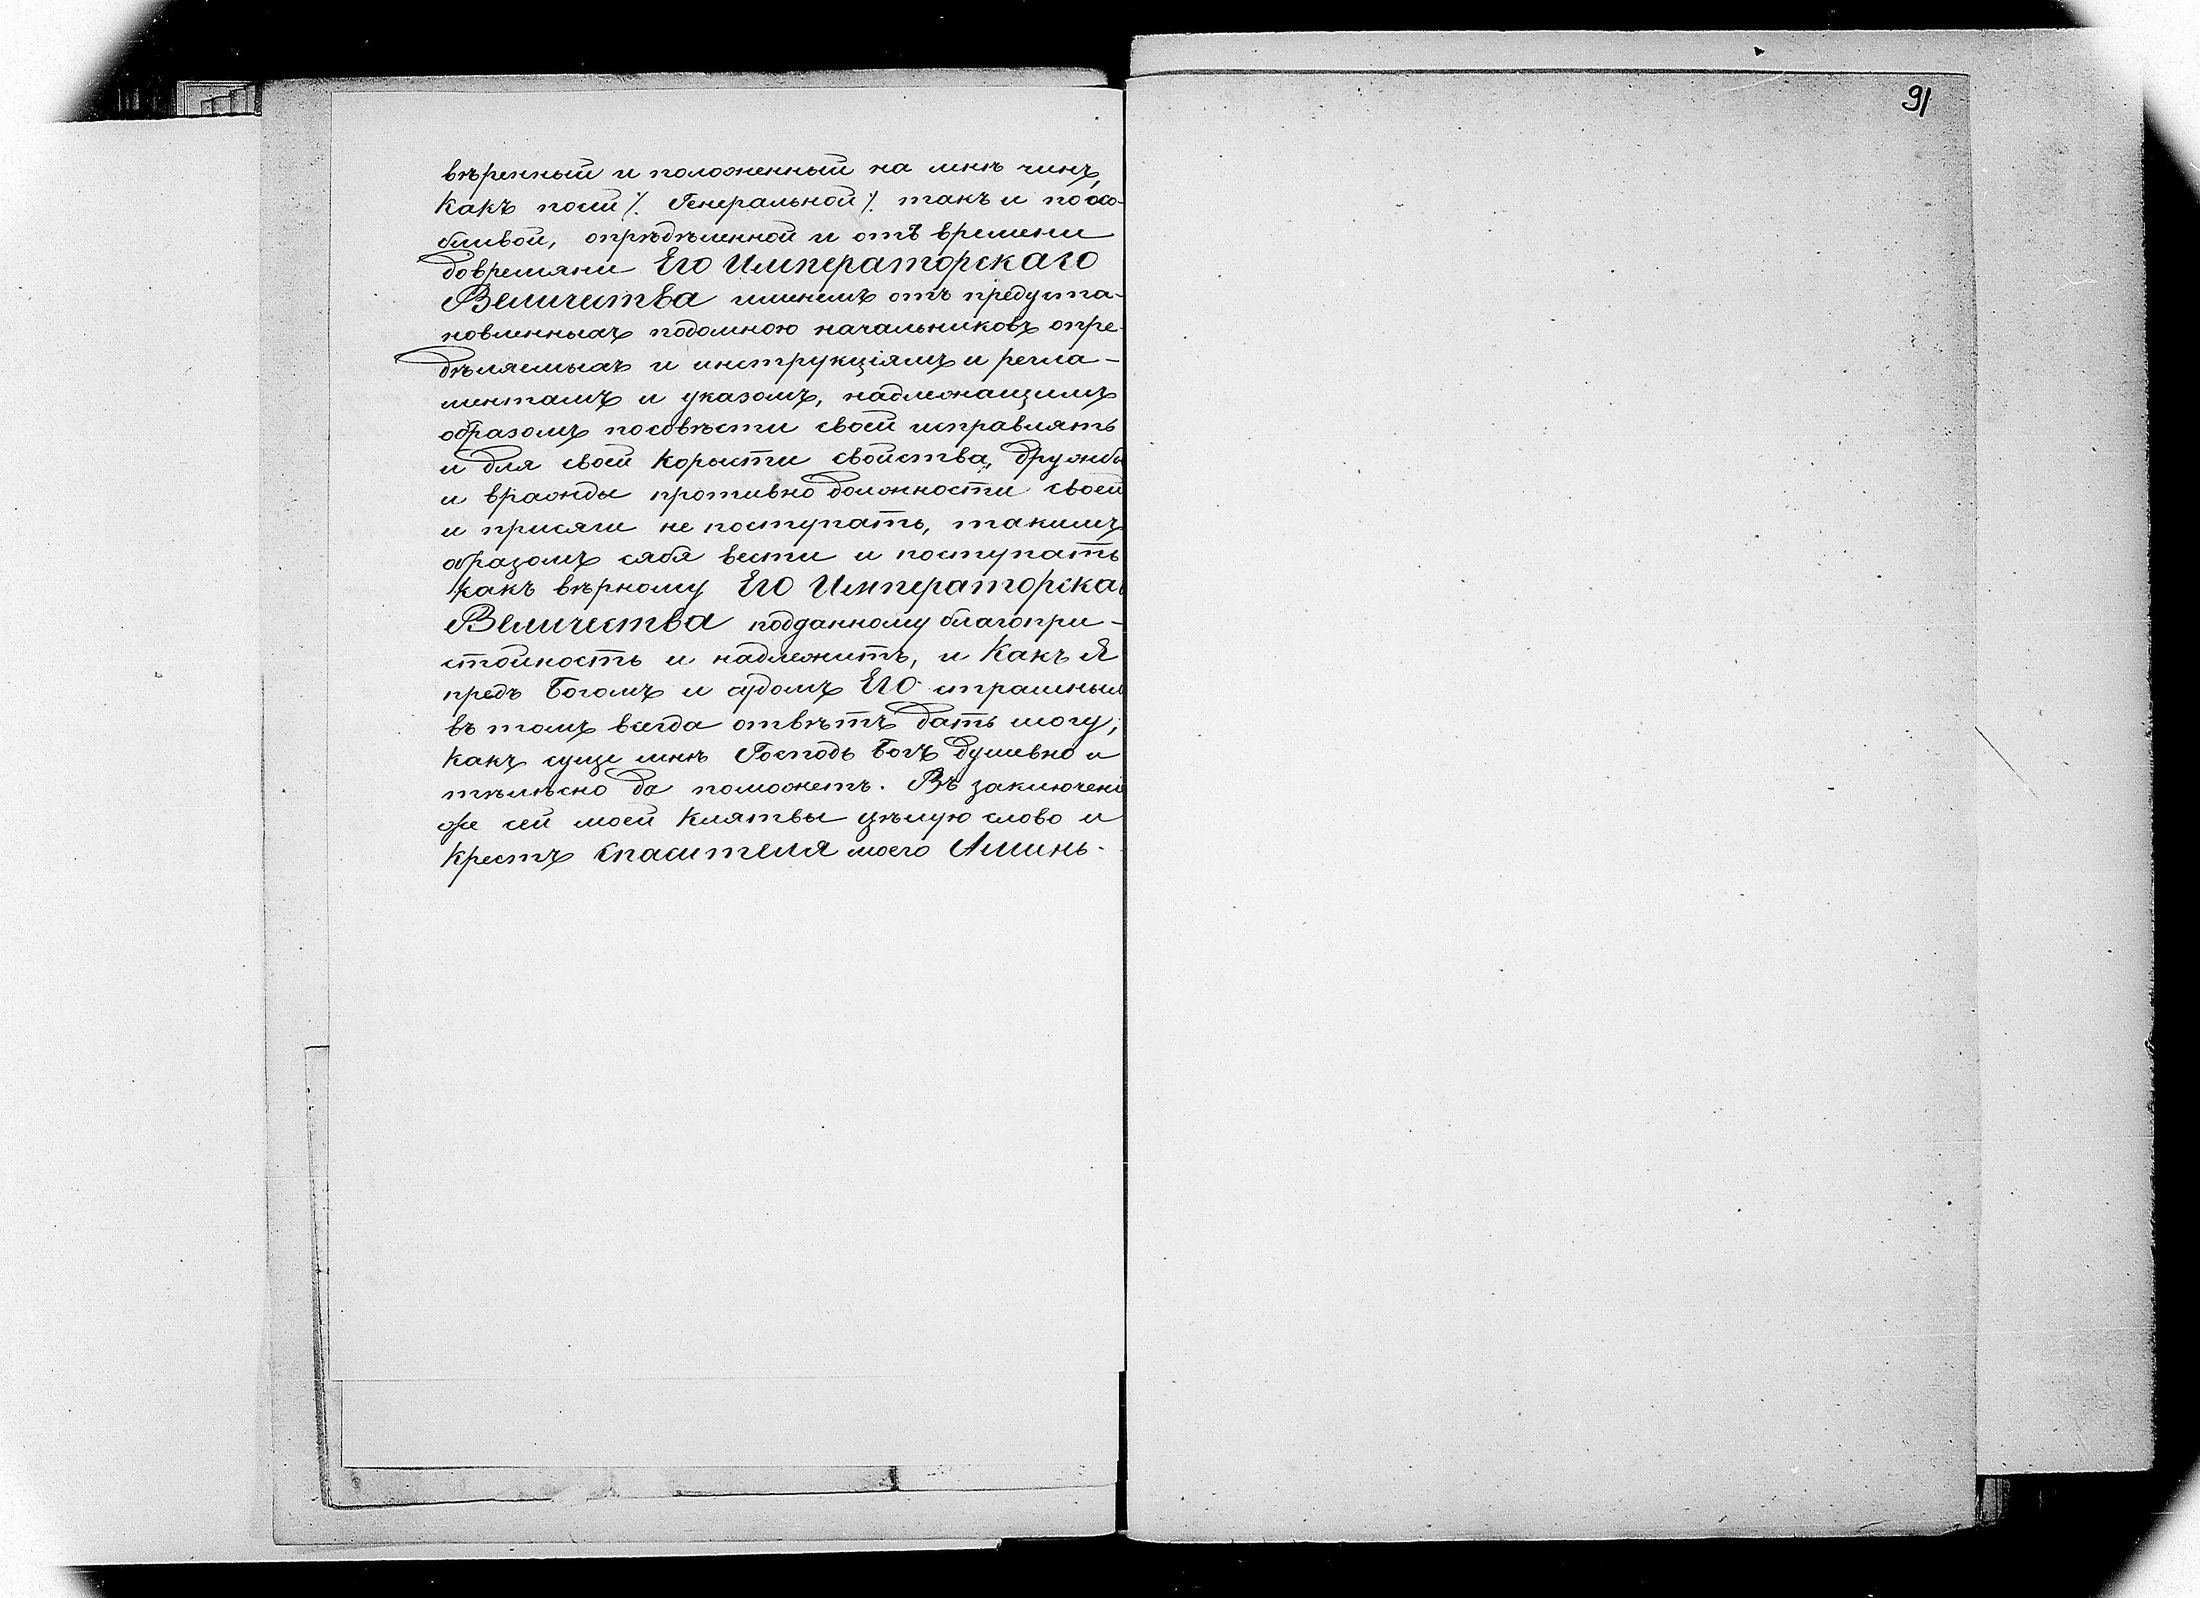 91
вѣренный и положенный на мнѣ чинъ,
Какъ посей /. Генеральной /. такъ и поосо-
бливой, опрѣдѣленной и отъ времени
довремяни Его Императорскаго
Величества имянемъ отъ предуста-
новленныхъ подомною начальниковъ опре-
дѣляемыхъ и инструкціямъ и регла-
ментамъ и указомъ, надлежащимъ
образомъ посовѣсти своей исправлять
и для своей Корысти свойства, дружбы
и вражды противно должности своей
и присяги не поступать, такимъ
образомъ сябя вести и поступать
какъ вѣрному Его Императорска
Величества подданному благопри-
стойность и надлежитъ, и Какъ Я
предъ Богомъ и судомъ ЕГО страшным
въ томъ всегда отвѣтъ дать могу,
Какъ суще мнѣ Господь Богъ душевно и
тѣлѣсно да поможетъ. Въ заключени
же сей моей Клятвы цѣлую слово и
Крестъ Спасителя моего Аминь.